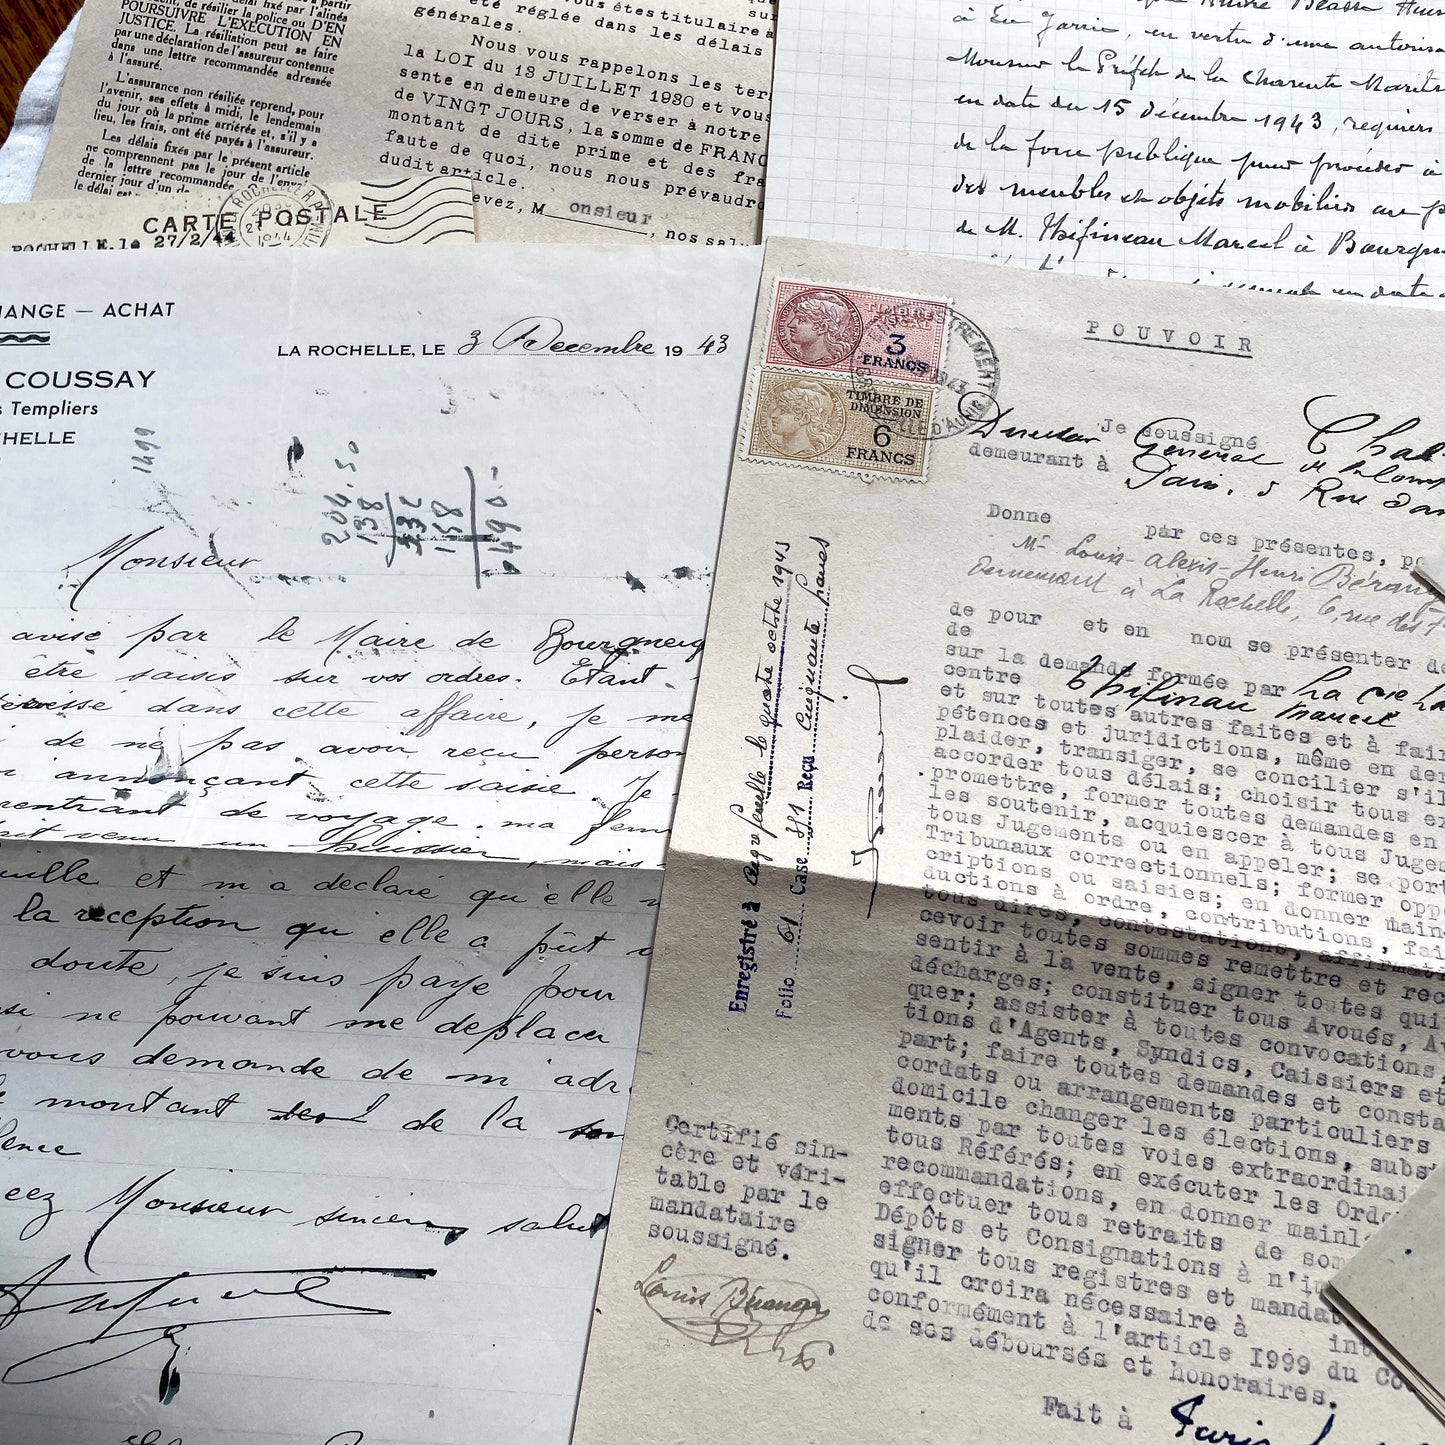 à partir
de résilier la police ou D'EN
POURSUIVRE L'EXECUTION EN
JUSTICE. La résiliation peut se faire
par une déclaration de l'assureur contenue
dans une lettre recommandée adressée
à l'assuré.
L'assurance non résiliée reprend, pour
l'avenir, ses effets à midi, le lendemain
du jour où la prime arriérée et, s'il y a
lieu, les frais, ont été payés à l'assureur.
Les délais fixés par le présent article
ne comprennent pas le jour de l'envoi
de la lettre recommandée
dernier jour d'un
le délai est
vous êtes titulaire a
été réglée dans les délais
générales.
Nous vous rappelons les ter
la LOI du 13 JUILLET 1930 et vous
sente en demeure de verser à notre
de VINGT JOURS, la somme de FRANC
montant de dite prime et des fra
faute de quoi, nous nous prévaudro
dudit article.
evez, M onsieur, nos salu
CARTE POSTALE
ROCHELLE, le 27/2/44
à La Jarrie, en vertu d'une autoris
Monsieur le Préfet de la Charente Marit
en date du 15 décembre 1943, requiers
de la force publique pour procéder à
des meubles et objets mobiliers au p
de M. Thifineau Marcel à Bourgn
HANGE — ACHAT
COUSSAY
s Templiers
CHELLE
LA ROCHELLE, LE 3 Decembre 1943
1499
204.50
138
158
490-
Monsieur
avisé par le Maire de Bourgneuf
être saisis sur vos ordres. Étant
dans cette affaire, je me
de ne pas avoir reçu person
annonçant cette saisie. Je
rentrant de voyage. ma fem
venu un huissier, mais
et m a declaré qu'elle n
la reception qu elle a pût
doute, je suis paye pour
si ne pouvant me deplacer
vous demande de m'adr
montant de la
eez Monsieur sinceres salut
POUVOIR
TIMBRE FISCAL
3
FRANCS
TIMBRE DE
DIMENSION
6
FRANCS
Je soussigné
Directeur General
demeurant à Paris, 5 Rue
Donne par ces présentes, po
Mr Louis-Alexis-Henri Béran
demeurant à La Rochelle, 6, rue des
de pour et en nom se présenter de
de
sur la demande formée par La
centre Thifineau Marcel
et sur toutes autres faites et à fair
pétences et juridictions, même en der
plaider, transiger, se concilier s'il
accorder tous délais; choisir tous ex
promettre, former toutes demandes en
les soutenir, acquiescer à tous Jugem
tous Jugements ou en appeler; se port
Tribunaux correctionnels; former opp
criptions ou saisies; en donner main
ductions à ordre, contributions, fai
tous dires, contestations, affirmat
cevoir toutes sommes remettre et rec
sentir à la vente, signer toutes qui
décharges; constituer tous Avoués, Av
quer; assister à toutes convocations,
tions d'Agents, Syndics, Caissiers et
part; faire toutes demandes et consta
cordats ou arrangements particuliers
domicile changer les élections, subst
ments par toutes voies extraordinai
tous Référés; en exécuter les Ordo
recommandations, en donner mainl
effectuer tous retraits de som
Dépôts et Consignations à n'im
signer tous registres et mandat
qu'il croira nécessaire à int
conformément à l'article 1999 du Co
de ses déboursés et honoraires.
Fait à Paris
Enregistré à Aigrefeuille le quatre octobre 1943
Folio 61 Case 381 Reçu Cinquante francs
Certifié sin-
cère et véri-
table par le
mandataire
soussigné.
Louis Béranger